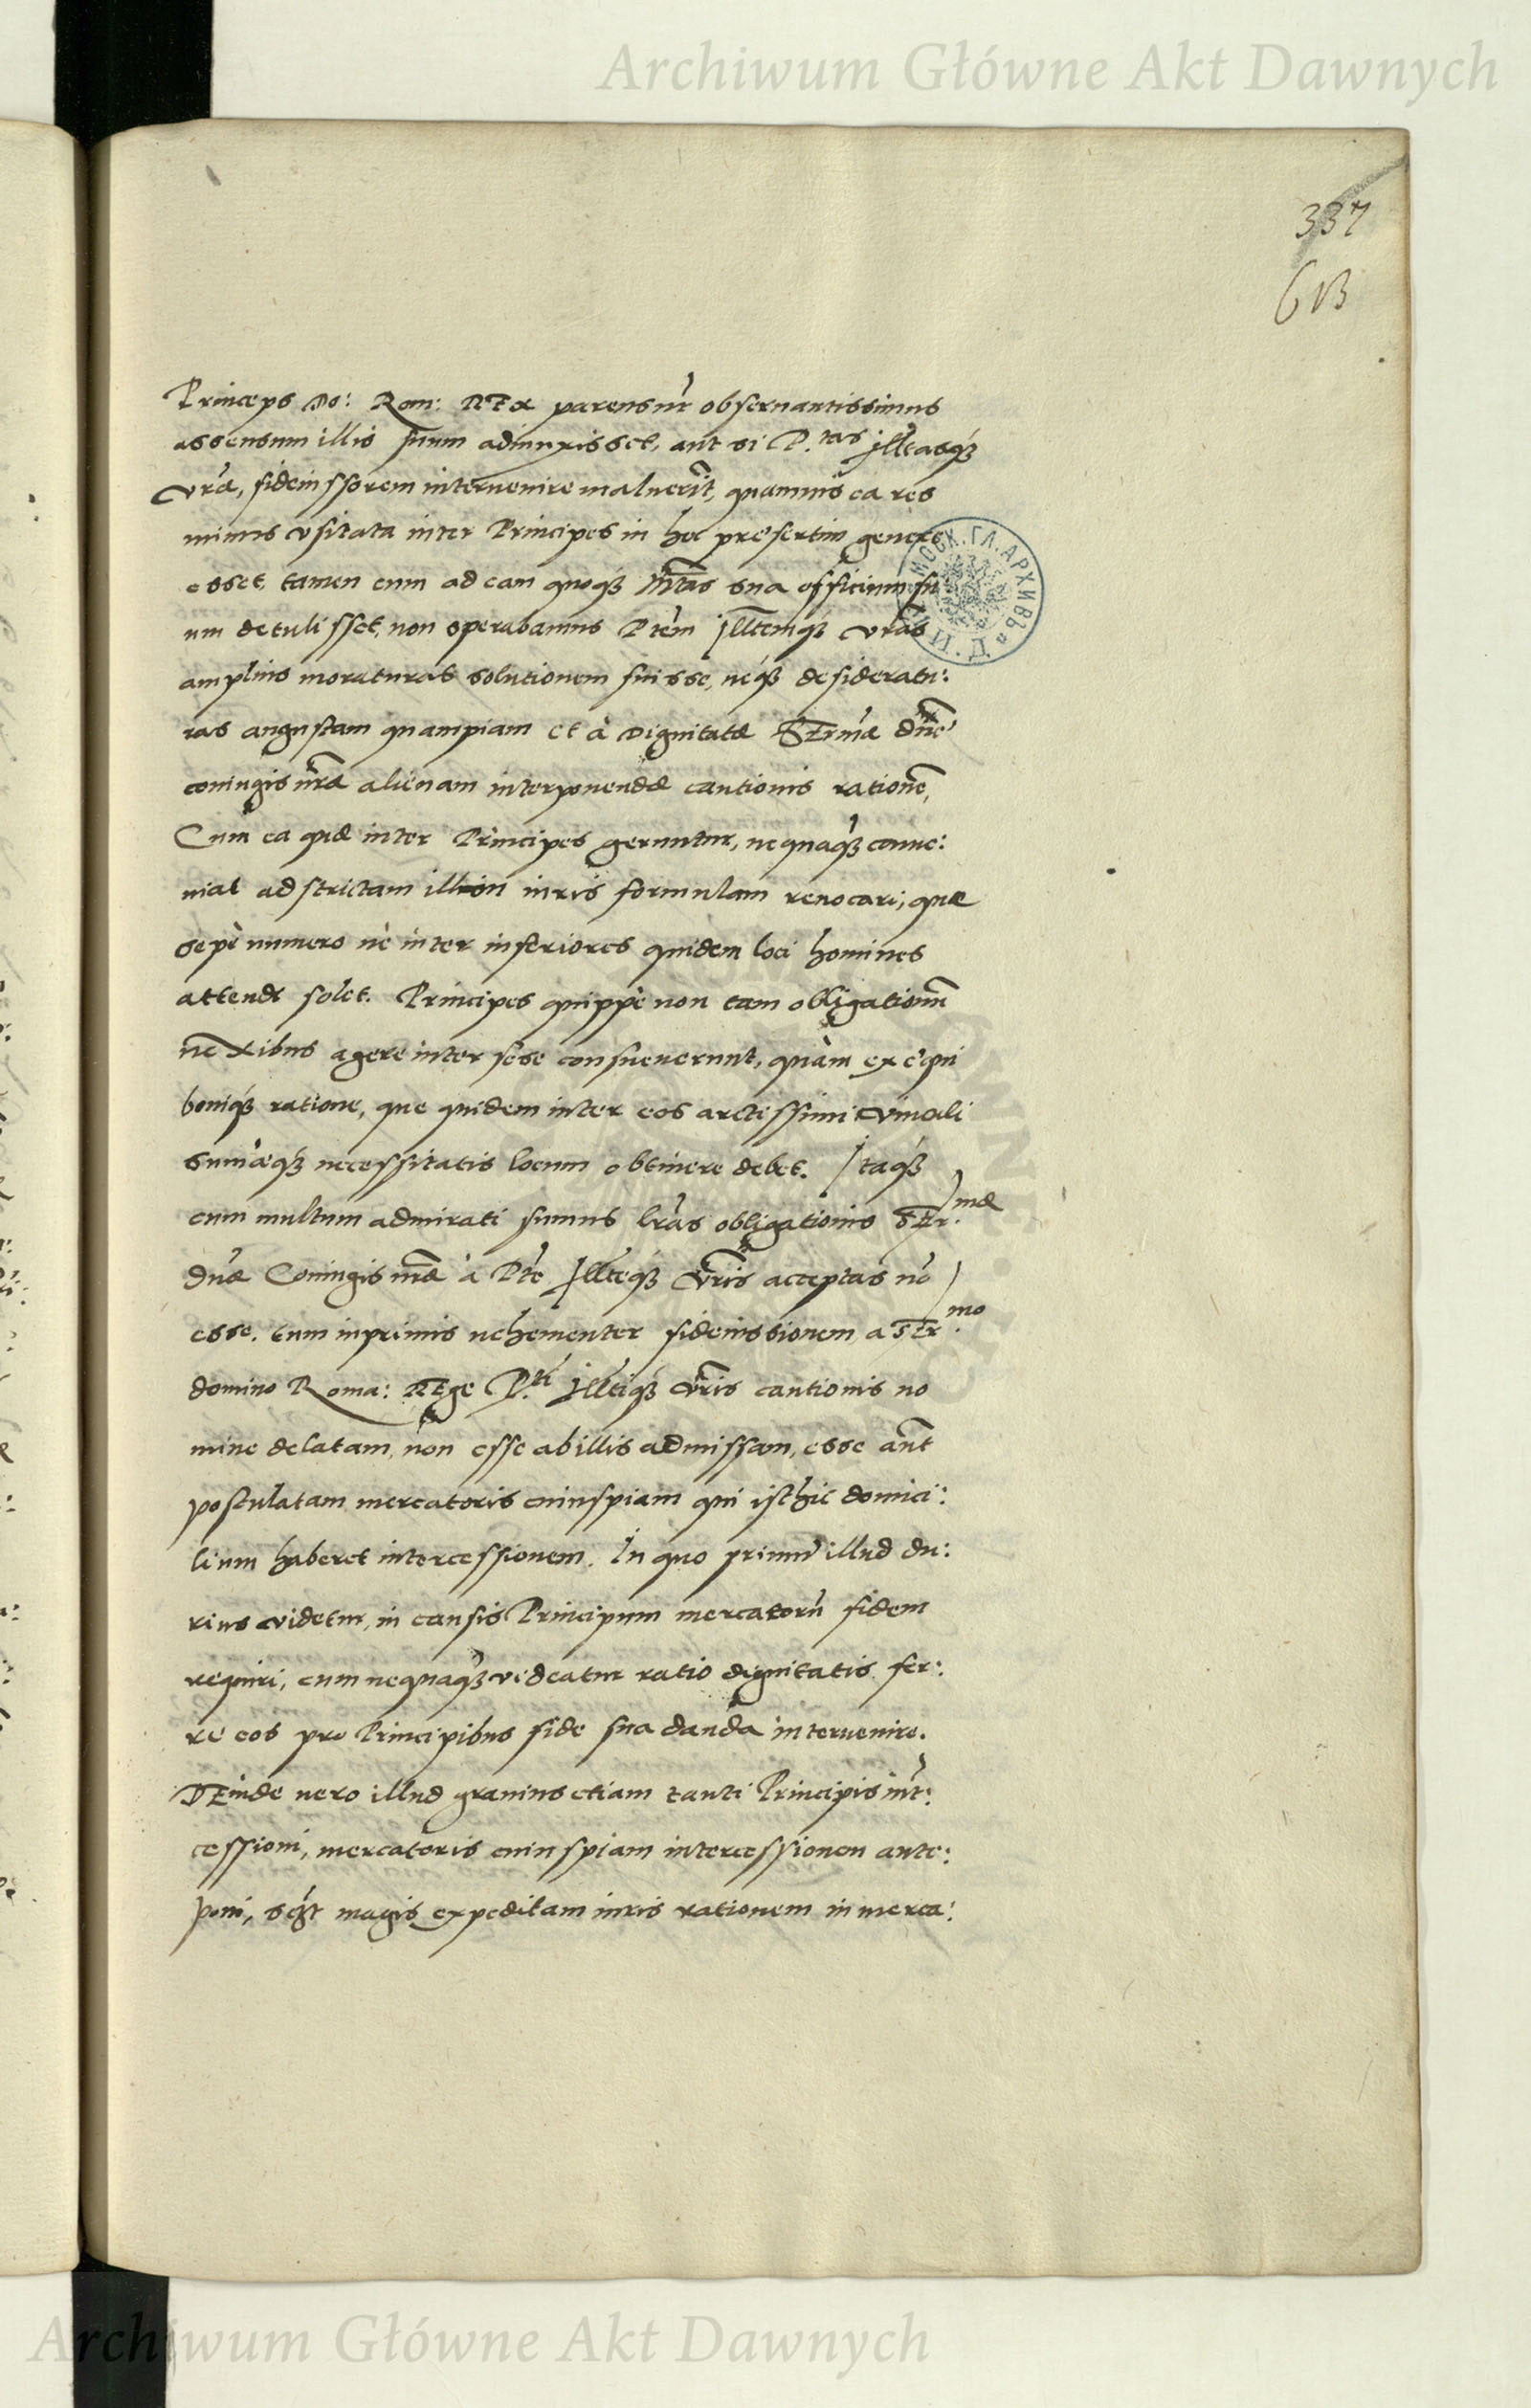 Archiwum Główne Akt Dawnych
337
613
Princeps Do: Rom: REx parens nr̃ obseruantissimus
assensum illis suum adiunxisset, aut si P.tas Jllt̃asq́ꝫ
vr̃a, fideiussorem interuenire maluerit, quamuis ea res
minus vsitata inter Principes in hoc presertim genere
esset, tamen cum ad eam quoqꝫ Mt̃as sua officium su
um detulisset, non sperabamus Ptẽm Jllt̃emqꝫ vr̃as
amplius moraturas solutionem fuisse, neqꝫ desideratu:
ras angustam quampiam et à Dignitate SErmæ dnẽ
coniugis nr̃æ alienam interponendæ cautionis rationẽ,
Cum ea quæ inter Principes geruntur, nequaqꝫ conue:
niat ad strictam illam iuris formulam reuocari, quæ
sepè numero nè inter inferiores quidem loci homines
attendi solet. Principes quippè non tam obligationũ
nexibus agere inter sese consueuerunt, quàm ex ęqui
boniqꝫ ratione, que quidem inter eos arctissimi vinculi
sumæqꝫ necessitatis locum obtinere debet. Jtaqꝫ
cum multum admirati sumus lr̃as obligationis SEr.mæ
dnæ Coniugis nr̃æ à Pte Jllt̃eqꝫ vr̃is acceptas nõ
esse. tum inprimis uehementer fideiussionem, a SEr.mo
domino Roma: REge P.ti Jllt̃iqꝫ vr̃is cautionis no
mine delatam, non esse ab illis admissam, esse aũt
postulatam mercatoris cuiuspiam qui isthic domici:
lium haberet intercessionem. In quo primũ illud du:
rius videtur, in causis Principum mercatorũ fidem
requiri, cum nequaqꝫ videatur ratio dignitatis fer:
re eos pro Principibus fide sua danda interuenire.
DEinde uero illud grauius etiam tanti Principis int̃:
cessioni, mercatoris cuiuspiam intercessionem ante:
poni, magis expeditam iuris rationem in merca:
МОСК. ГЛ. АРХИВЪ
Archiwum Główne Akt Dawnych